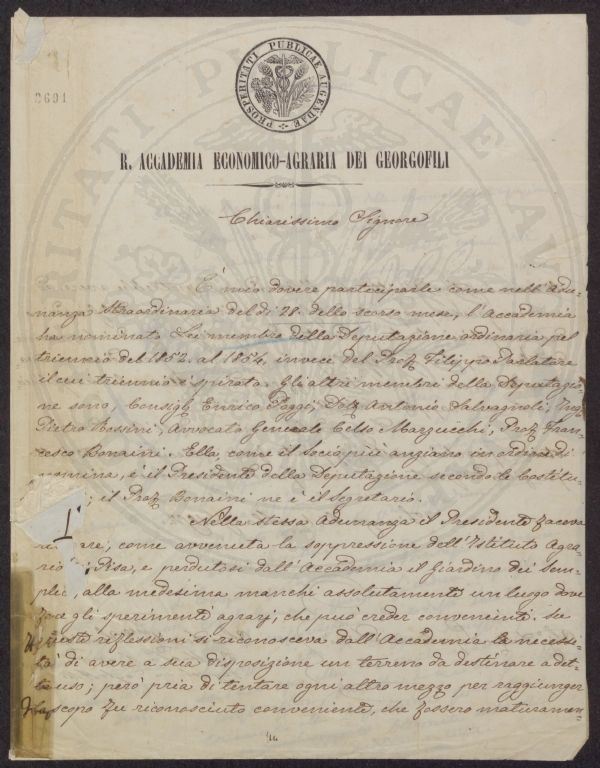 2691
PROSPERITATI PUBLICAE AUGENDAE
R. ACCADEMIA ECONOMICO-AGRARIA DEI GEORGOFILI
Chiarissimo Signore
È mio dovere parteciparle come nell'Adu=
nanza straordinaria del dì 28. dello scorso mese, l'Accademia
ha nominato Lei membro della Deputazione ordinaria pel
triennio del 1852. al 1854. invece del Prof. Filippo Parlatore
il cui triennio è spirato. Gli altri membri della Deputazio=
ne sono, Consigl. Enrico Poggi, Dott. Antonio Salvagnoli,
Pietro Rossini, Avvocato Generale Celso Marzucchi, Prof. Fran=
cesco Bonaini. Ella, come il Socio più anziano in ordine di
nomina, è il Presidente della Deputazione secondo le Costitu=
; il Prof. Bonaini ne è il Segretario.
Nella stessa Adunanza il Presidente faceva
re, come avvenuta la soppressione dell'Istituto Agra=
rio di Pisa, e perdutosi dall'Accademia il Giardino dei Sem=
plici, alla medesima manchi assolutamente un luogo dove
fare gli sperimenti agrarj, che può creder convenienti. Su
queste riflessioni si riconosceva dall'Accademia la necessi=
tà di avere a sua disposizione un terreno da destinare a det=
to uso; però pria di tentare ogni altro mezzo per raggiunger
lo scopo fu riconosciuto conveniente, che fossero maturamen=